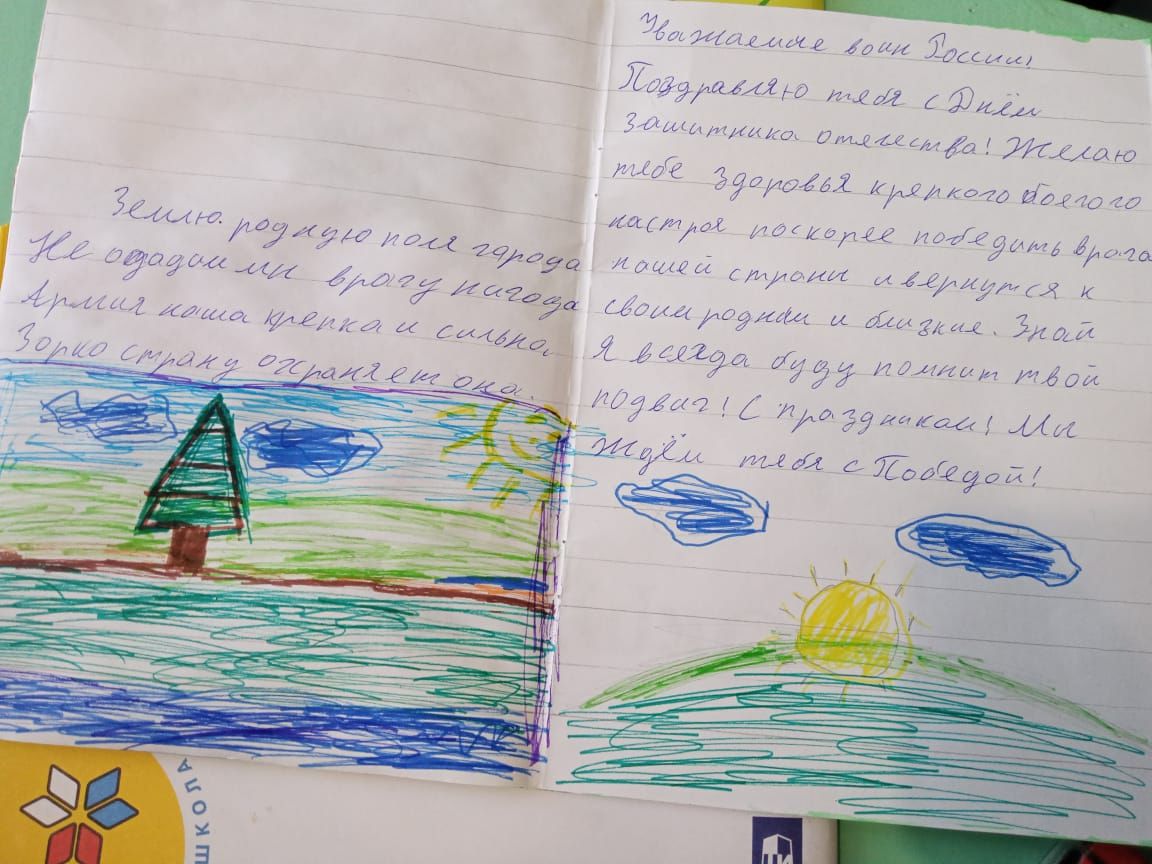 Землю родную поля гарада
Не одадим мы врагу нигода
Армия наша крепка и сильна.
Зорко страну охраняет она.
Уважаемые воин России!
Поздравляю тебя с Днём
зашитника отячества! Желаю
тебе здоровья крепкого боегого
настроя поскорее победить врага
нашей страны и вернутся к
своим родным и близкие. Знай
я всегда буду помнит твой
подвиг! С праздником! Мы
ждём тебя с Победой!
ШКОЛА